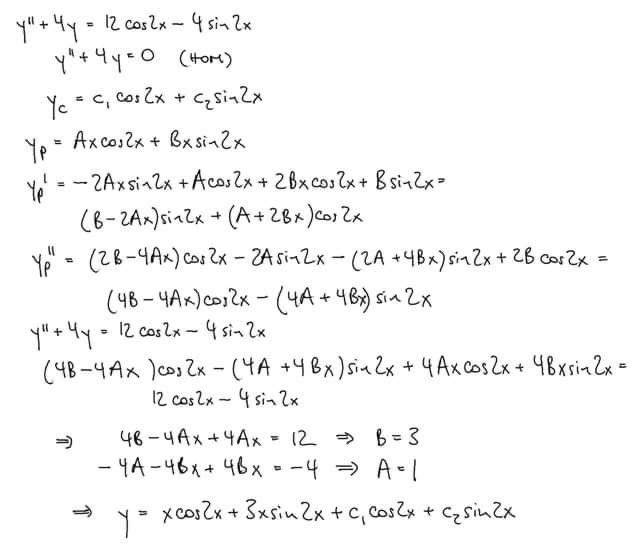 y" + 4y = 12 cos2x − 4 sin2x
y" + 4y = 0 (HOM)
y_c = c₁ cos2x + c₂ sin2x
y_p = Axcos2x + Bxsin2x
y_p' = −2Axsin2x + Acos2x + 2Bxcos2x + Bsin2x =
(B−2Ax)sin2x + (A+2Bx)cos2x
y_p" = (2B−4Ax)cos2x − 2Asin2x − (2A+4Bx)sin2x + 2B cos2x =
(4B−4Ax)cos2x − (4A+4Bx)sin2x
y" + 4y = 12 cos2x − 4 sin2x
(4B−4Ax)cos2x − (4A+4Bx)sin2x + 4Axcos2x + 4Bxsin2x =
12 cos2x − 4 sin2x
⇒ 4B−4Ax+4Ax = 12 ⇒ B=3
−4A−4Bx+4Bx = −4 ⇒ A=1
⇒ y = xcos2x + 3xsin2x + c₁cos2x + c₂sin2x